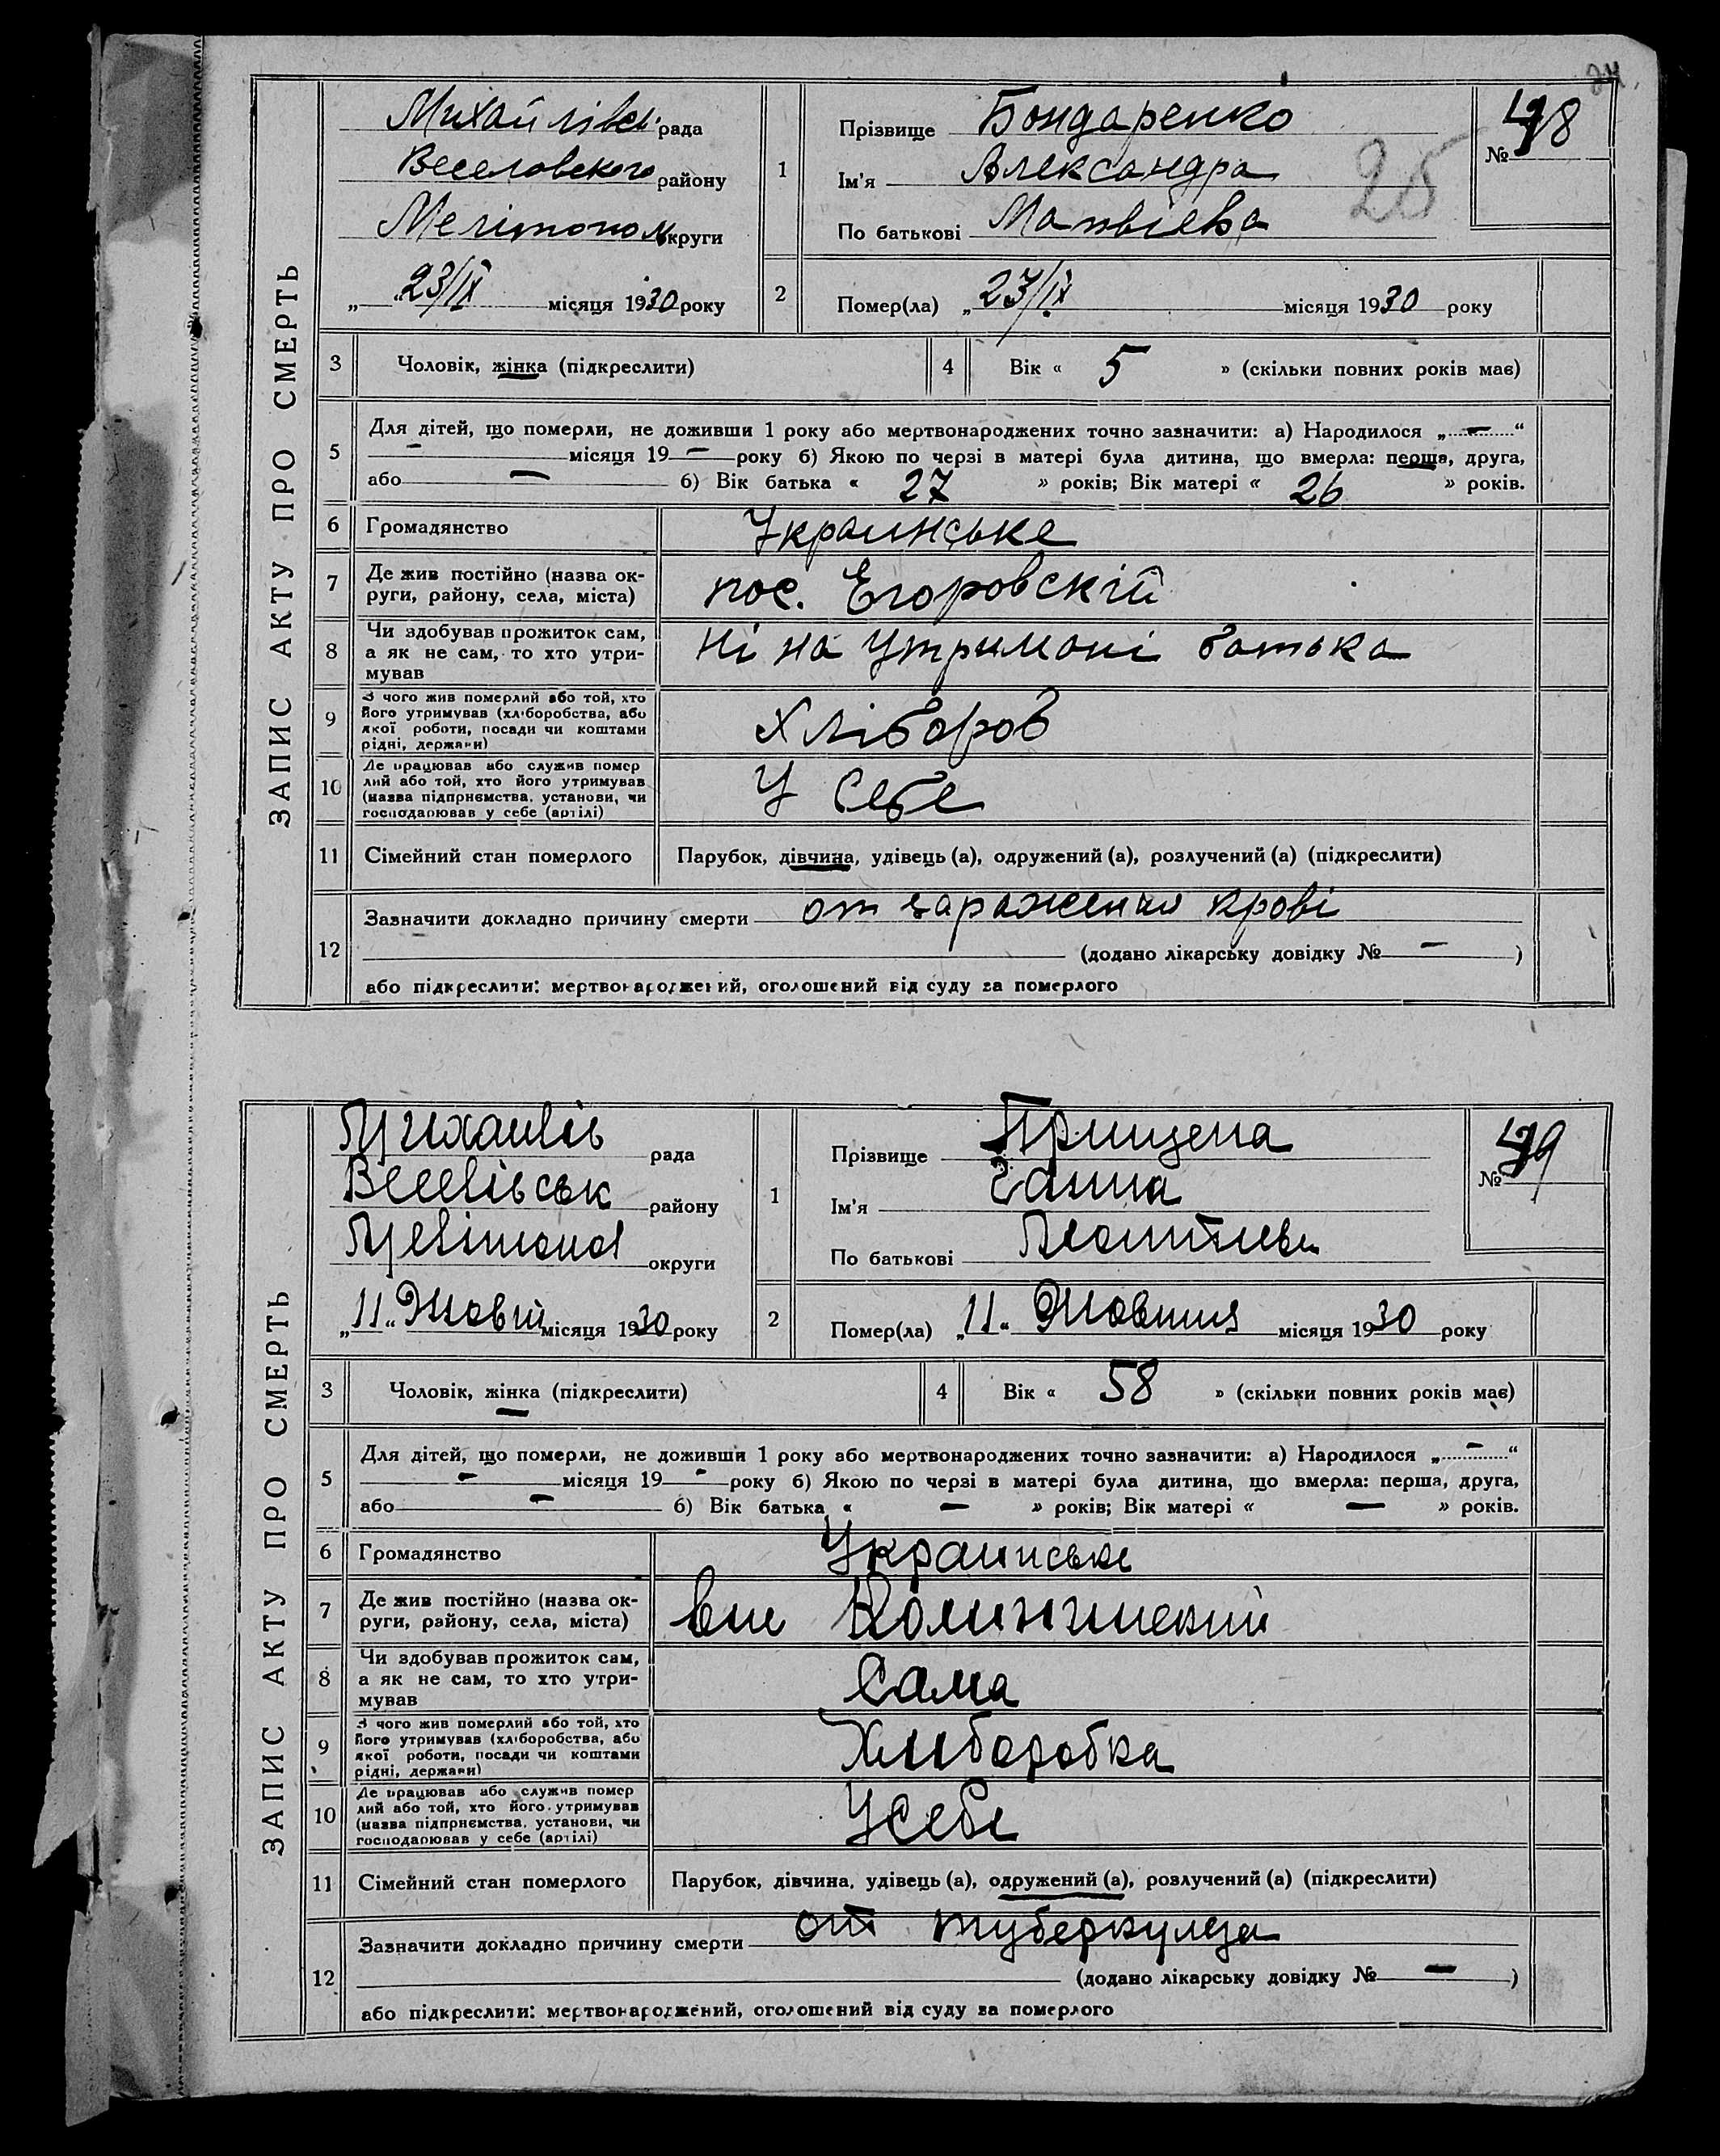 24.
ЗАПИС АКТУ ПРО СМЕРТЬ
Михайлівсь. рада
Веселовского району
Мелітопол округи
„ 23/IX місяця 1930 року
1
Прізвище Бондаренко
Ім'я Александра
По батькові Матвієва
25
№ 48
2
Помер(ла) „ 23/IX місяця 1930 року
3 Чоловік, жінка (підкреслити)
4 Вік « 5 » (скільки повних років має)
5
Для дітей, що померли, не доживши 1 року або мертвонароджених точно зазначити: а) Народилося „ — “
— місяця 19 — року б) Якою по черзі в матері була дитина, що вмерла: перша, друга,
або — б) Вік батька « 27 » років; Вік матері « 26 » років.
6 Громадянство Украинське
7
Де жив постійно (назва ок-
руги, району, села, міста)
пос. Егоровскій
8
Чи здобував прожиток сам,
а як не сам, то хто утри-
мував
Ні на утримані батька
9
З чого жив померлий або той, хто
його утримував (хліборобства, або
якої роботи, посади чи коштами
рідні, держави)
Хлібороб
10
Де працював або служив помер
лий або той, хто його утримував
(назва підприємства, установи, чи
господарював у себе (артілі)
У себе
11 Сімейний стан померлого Парубок, дівчина, удівець (а), одружений (а), розлучений (а) (підкреслити)
12
Зазначити докладно причину смерти от зараження крові
(додано лікарську довідку № — )
або підкреслити: мертвонароджений, оголошений від суду за померлого
ЗАПИС АКТУ ПРО СМЕРТЬ
Михаилів рада
Веселівськ району
Мелітопол округи
„ 11 “ Жовтн місяця 1930 року
1
Прізвище Прищепа
Ім'я Ганна
По батькові Леонтиев
№ 49
2
Помер(ла) „ 11 “ Жовтня місяця 1930 року
3 Чоловік, жінка (підкреслити)
4 Вік « 58 » (скільки повних років має)
5
Для дітей, що померли, не доживши 1 року або мертвонароджених точно зазначити: а) Народилося „ — “
— місяця 19 — року б) Якою по черзі в матері була дитина, що вмерла: перша, друга,
або — б) Вік батька « — » років; Вік матері « — » років.
6 Громадянство Украинське
7
Де жив постійно (назва ок-
руги, району, села, міста)
8
Чи здобував прожиток сам,
а як не сам, то хто утри-
мував
Сама
9
З чого жив померлий або той, хто
його утримував (хліборобства, або
якої роботи, посади чи коштами
рідні, держави)
Хлиборобка
10
Де працював або служив помер
лий або той, хто його утримував
(назва підприємства, установи, чи
господарював у себе (артілі)
Усебе
11 Сімейний стан померлого Парубок, дівчина, удівець (а), одружений (а), розлучений (а) (підкреслити)
12
Зазначити докладно причину смерти от туберкулеза
(додано лікарську довідку № — )
або підкреслити: мертвонароджений, оголошений від суду за померлого